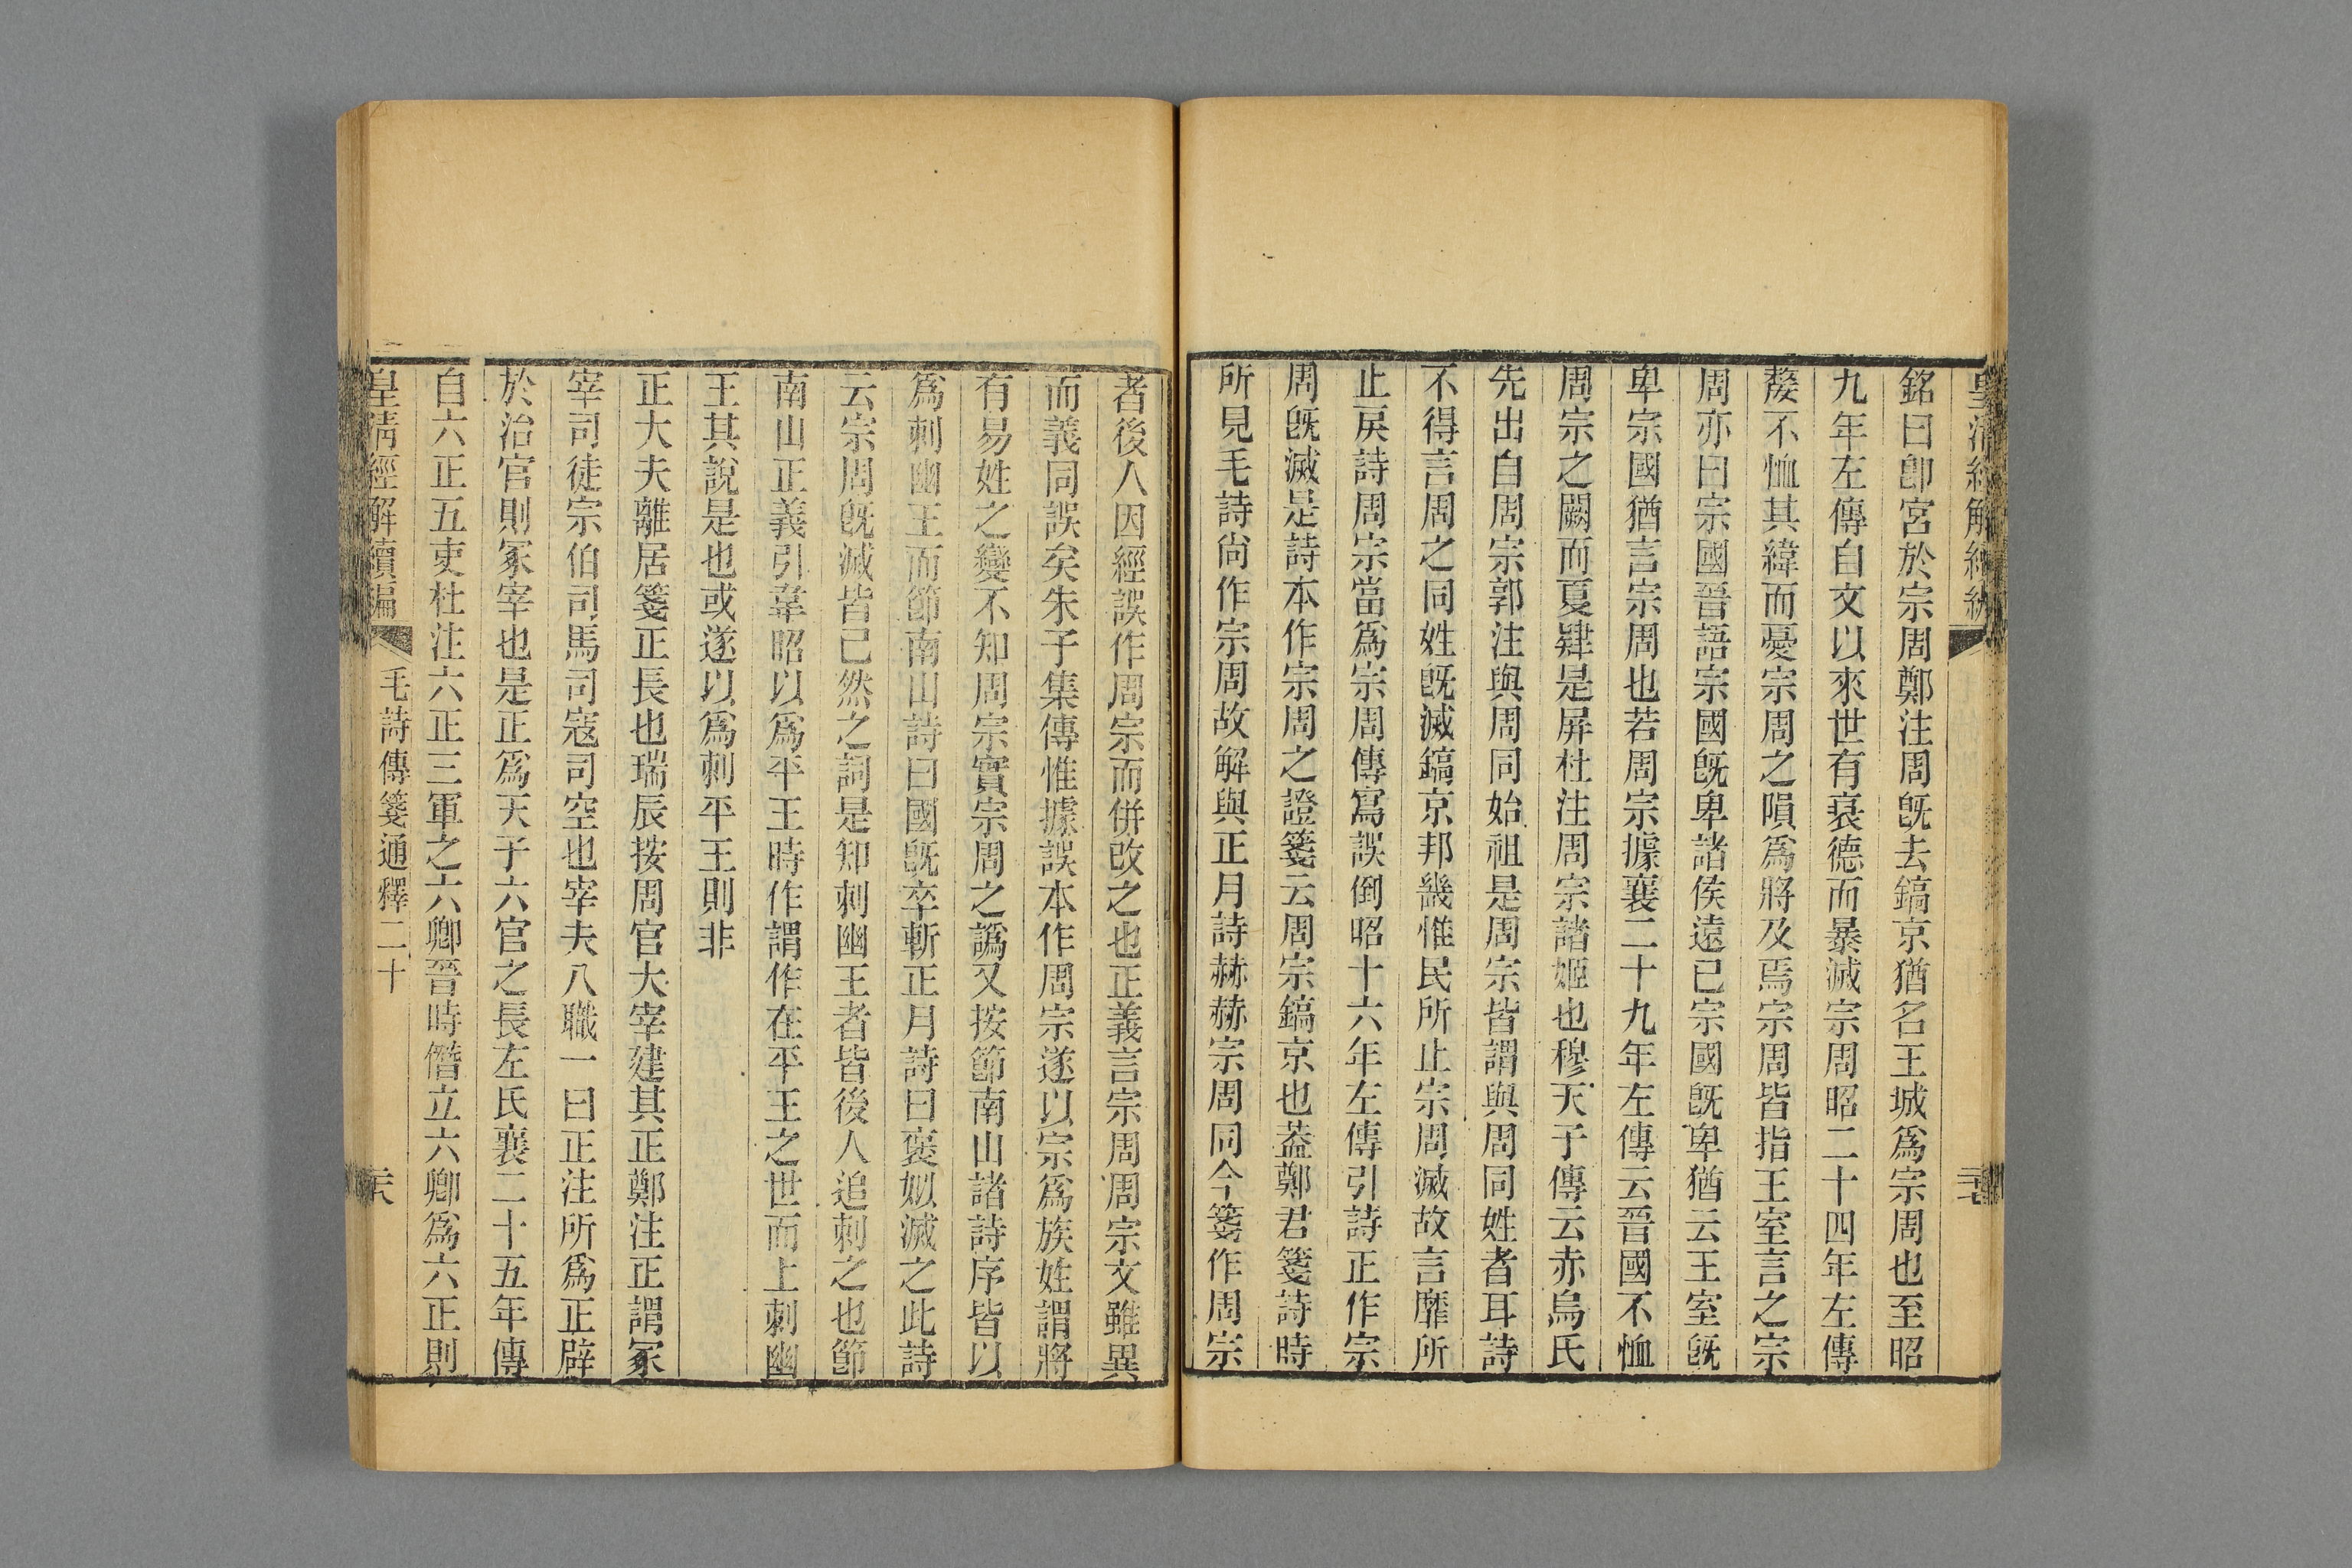 銘曰卽宮於宗周鄭注周旣去鎬京猶名王城爲宗周也至昭
九年左傳自文以來世有衰德而暴滅宗周昭二十四年左傳
嫠不恤其緯而憂宗周之隕爲將及焉宗周皆指王室言之宗
周亦曰宗國晉語宗國旣卑諸侯遠已宗國旣卑猶云王室旣
卑宗國猶言宗周也若周宗據襄二十九年左傳云晉國不恤
周宗之闕而夏肄是屏杜注周宗諸姬也穆天子傳云赤烏氏
先出自周宗郭注與周同始祖是周宗皆謂與周同姓者耳詩
不得言周之同姓旣滅鎬京邦畿惟民所止宗周滅故言靡所
止戾詩周宗當爲宗周傳寫誤倒昭十六年左傳引詩正作宗
周旣滅是詩本作宗周之證箋云周宗鎬京也葢鄭君箋詩時
所見毛詩尙作宗周故解與正月詩赫赫宗周同今箋作周宗
者後人因經誤作周宗而併改之也正義言宗周周宗文雖異
而義同誤矣朱子集傳惟據誤本作周宗遂以宗爲族姓謂將
有易姓之變不知周宗實宗周之譌又按節南山諸詩序皆以
爲刺幽王而節南山詩曰國旣卒斬正月詩曰褒姒滅之此詩
云宗周旣滅皆已然之詞是知刺幽王者皆後人追刺之也節
南山正義引韋昭以爲平王時作謂作在平王之世而上刺幽
王其說是也或遂以爲刺平王則非
正大夫離居箋正長也瑞辰按周官大宰建其正鄭注正謂冢
宰司徒宗伯司馬司寇司空也宰夫八職一曰正注所爲正辟
於治官則冢宰也是正爲天子六官之長左氏襄二十五年傳
自六正五吏杜注六正三軍之六卿晉時僭立六卿爲六正則
皇清經解續編 毛詩傳箋通釋二十 六